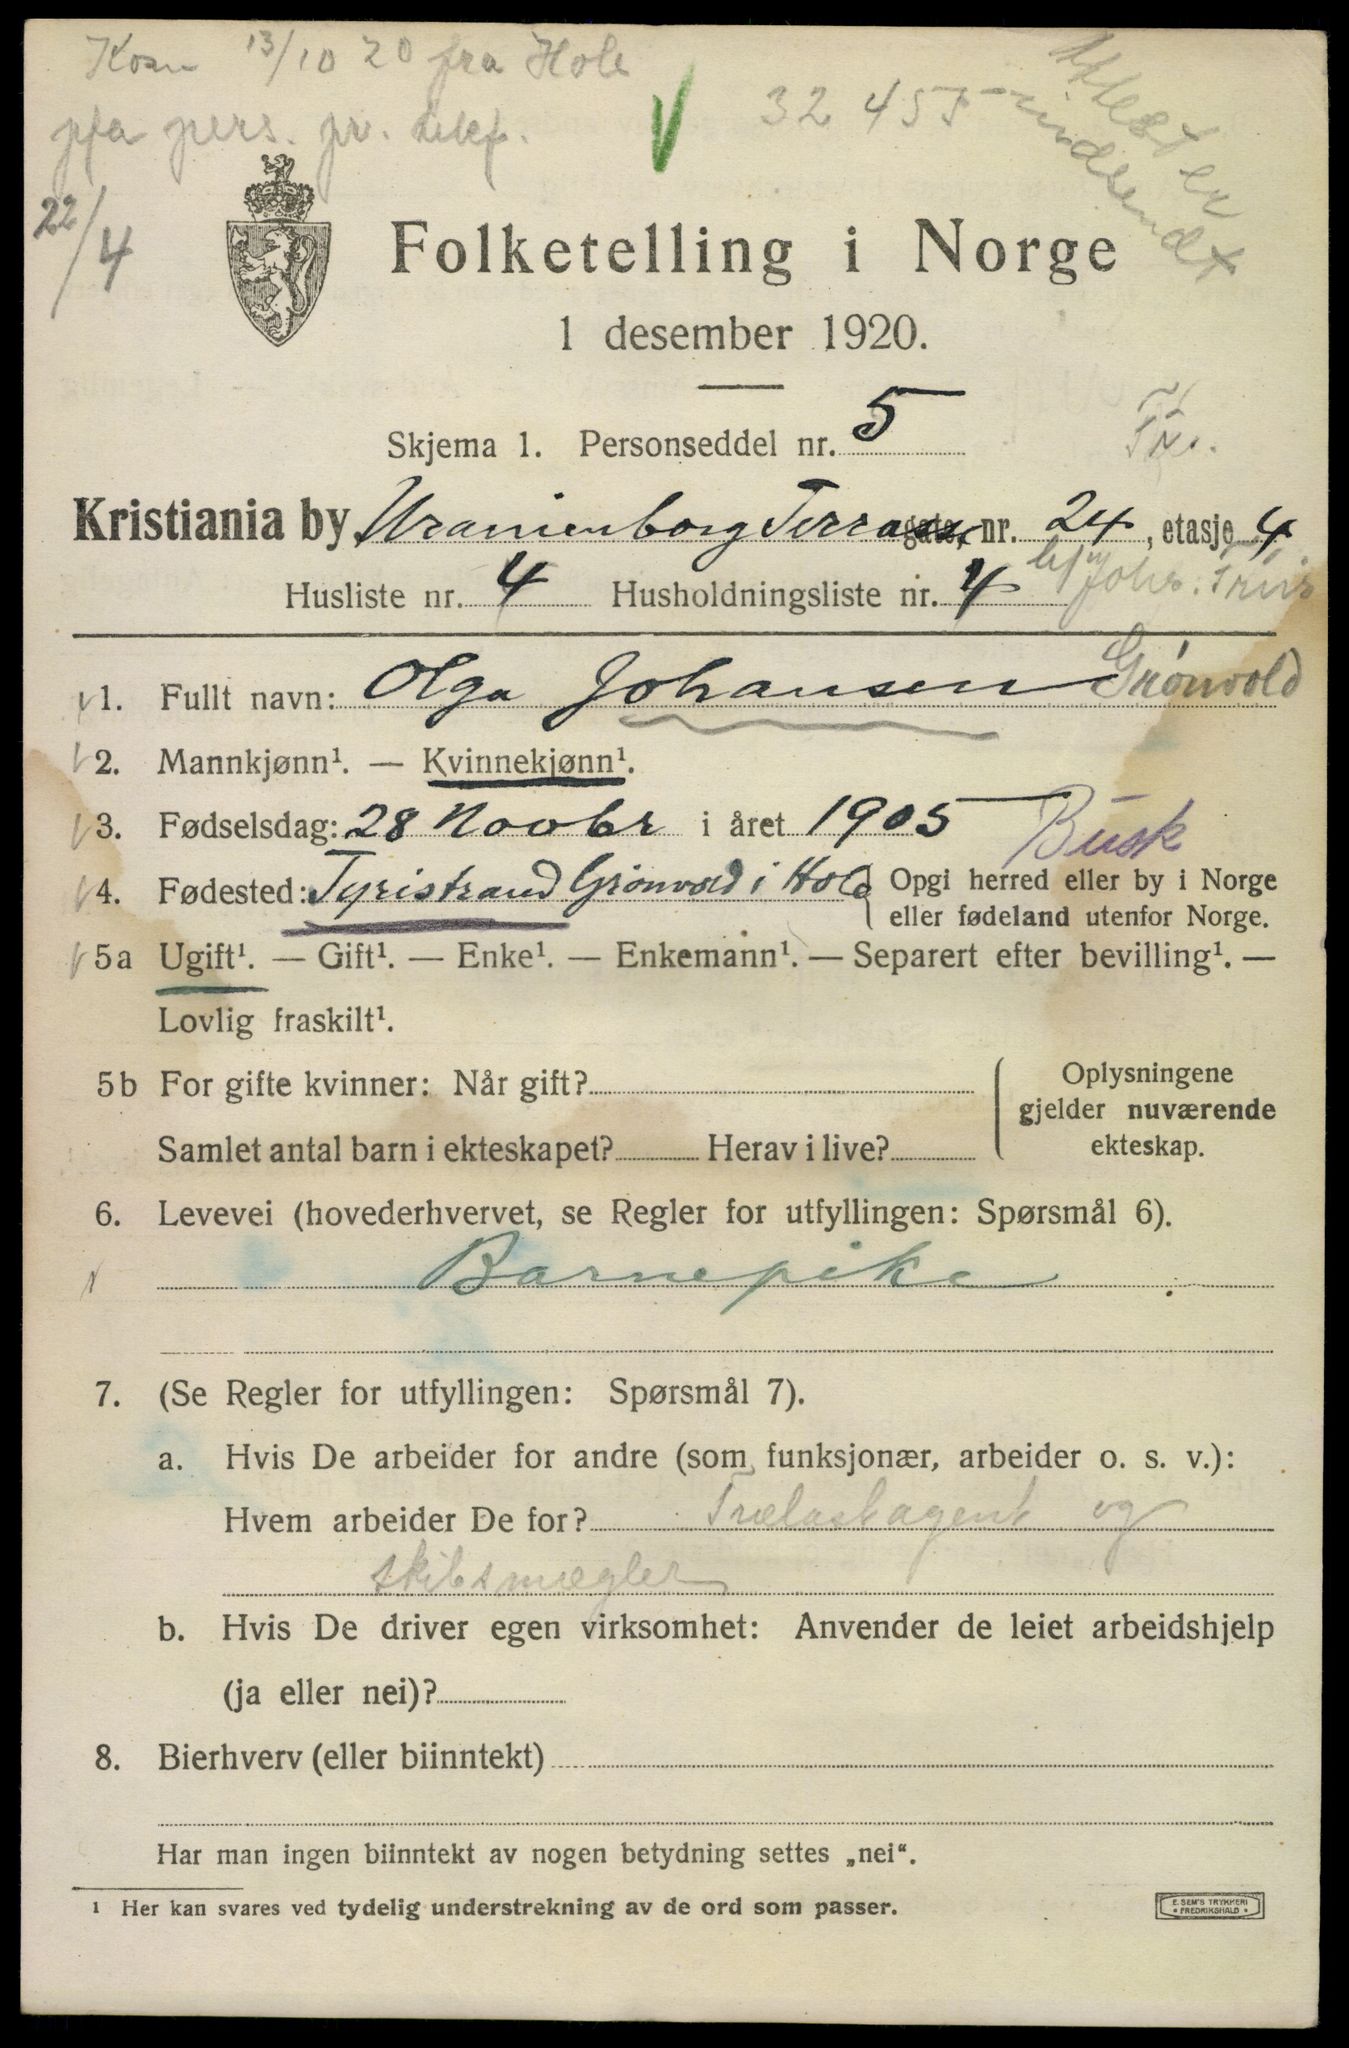 Kom 13/10 20 fra Hole
pfa pers. pr. telef.
32 455
Attest er
indsendt
22/4
Folketelling i Norge
1 desember 1920.
Skjema 1. Personseddel nr. 5
Kristiania by Uranienborg Terrasse gate, nr. 24, etasje 4
Husliste nr. 4 Husholdningsliste nr. 4
1. Fullt navn: Olga Johansen Grønvold
2. Mannkjønn¹. — Kvinnekjønn¹.
3. Fødselsdag: 28 Novbr i året 1905 Busk
4. Fødested: Tyristrand Grönvold i Hole Opgi herred eller by i Norge
eller fødeland utenfor Norge.
5a Ugift¹. — Gift¹. — Enke¹. — Enkemann¹. — Separert efter bevilling¹. —
Lovlig fraskilt¹.
5b For gifte kvinner: Når gift?
Samlet antal barn i ekteskapet? Herav i live?
Oplysningene
gjelder nuværende
ekteskap.
6. Levevei (hovederhvervet, se Regler for utfyllingen: Spørsmål 6).
Barnepike
7. (Se Regler for utfyllingen: Spørsmål 7).
a. Hvis De arbeider for andre (som funksjonær, arbeider o. s. v.):
Hvem arbeider De for? Trælastagent og
skibsmægler
b. Hvis De driver egen virksomhet: Anvender de leiet arbeidshjelp
(ja eller nei)?
8. Bierhverv (eller biinntekt)
Har man ingen biinntekt av nogen betydning settes „nei".
¹ Her kan svares ved tydelig understrekning av de ord som passer.
E. SEM'S TRYKKERI
FREDRIKSHALD